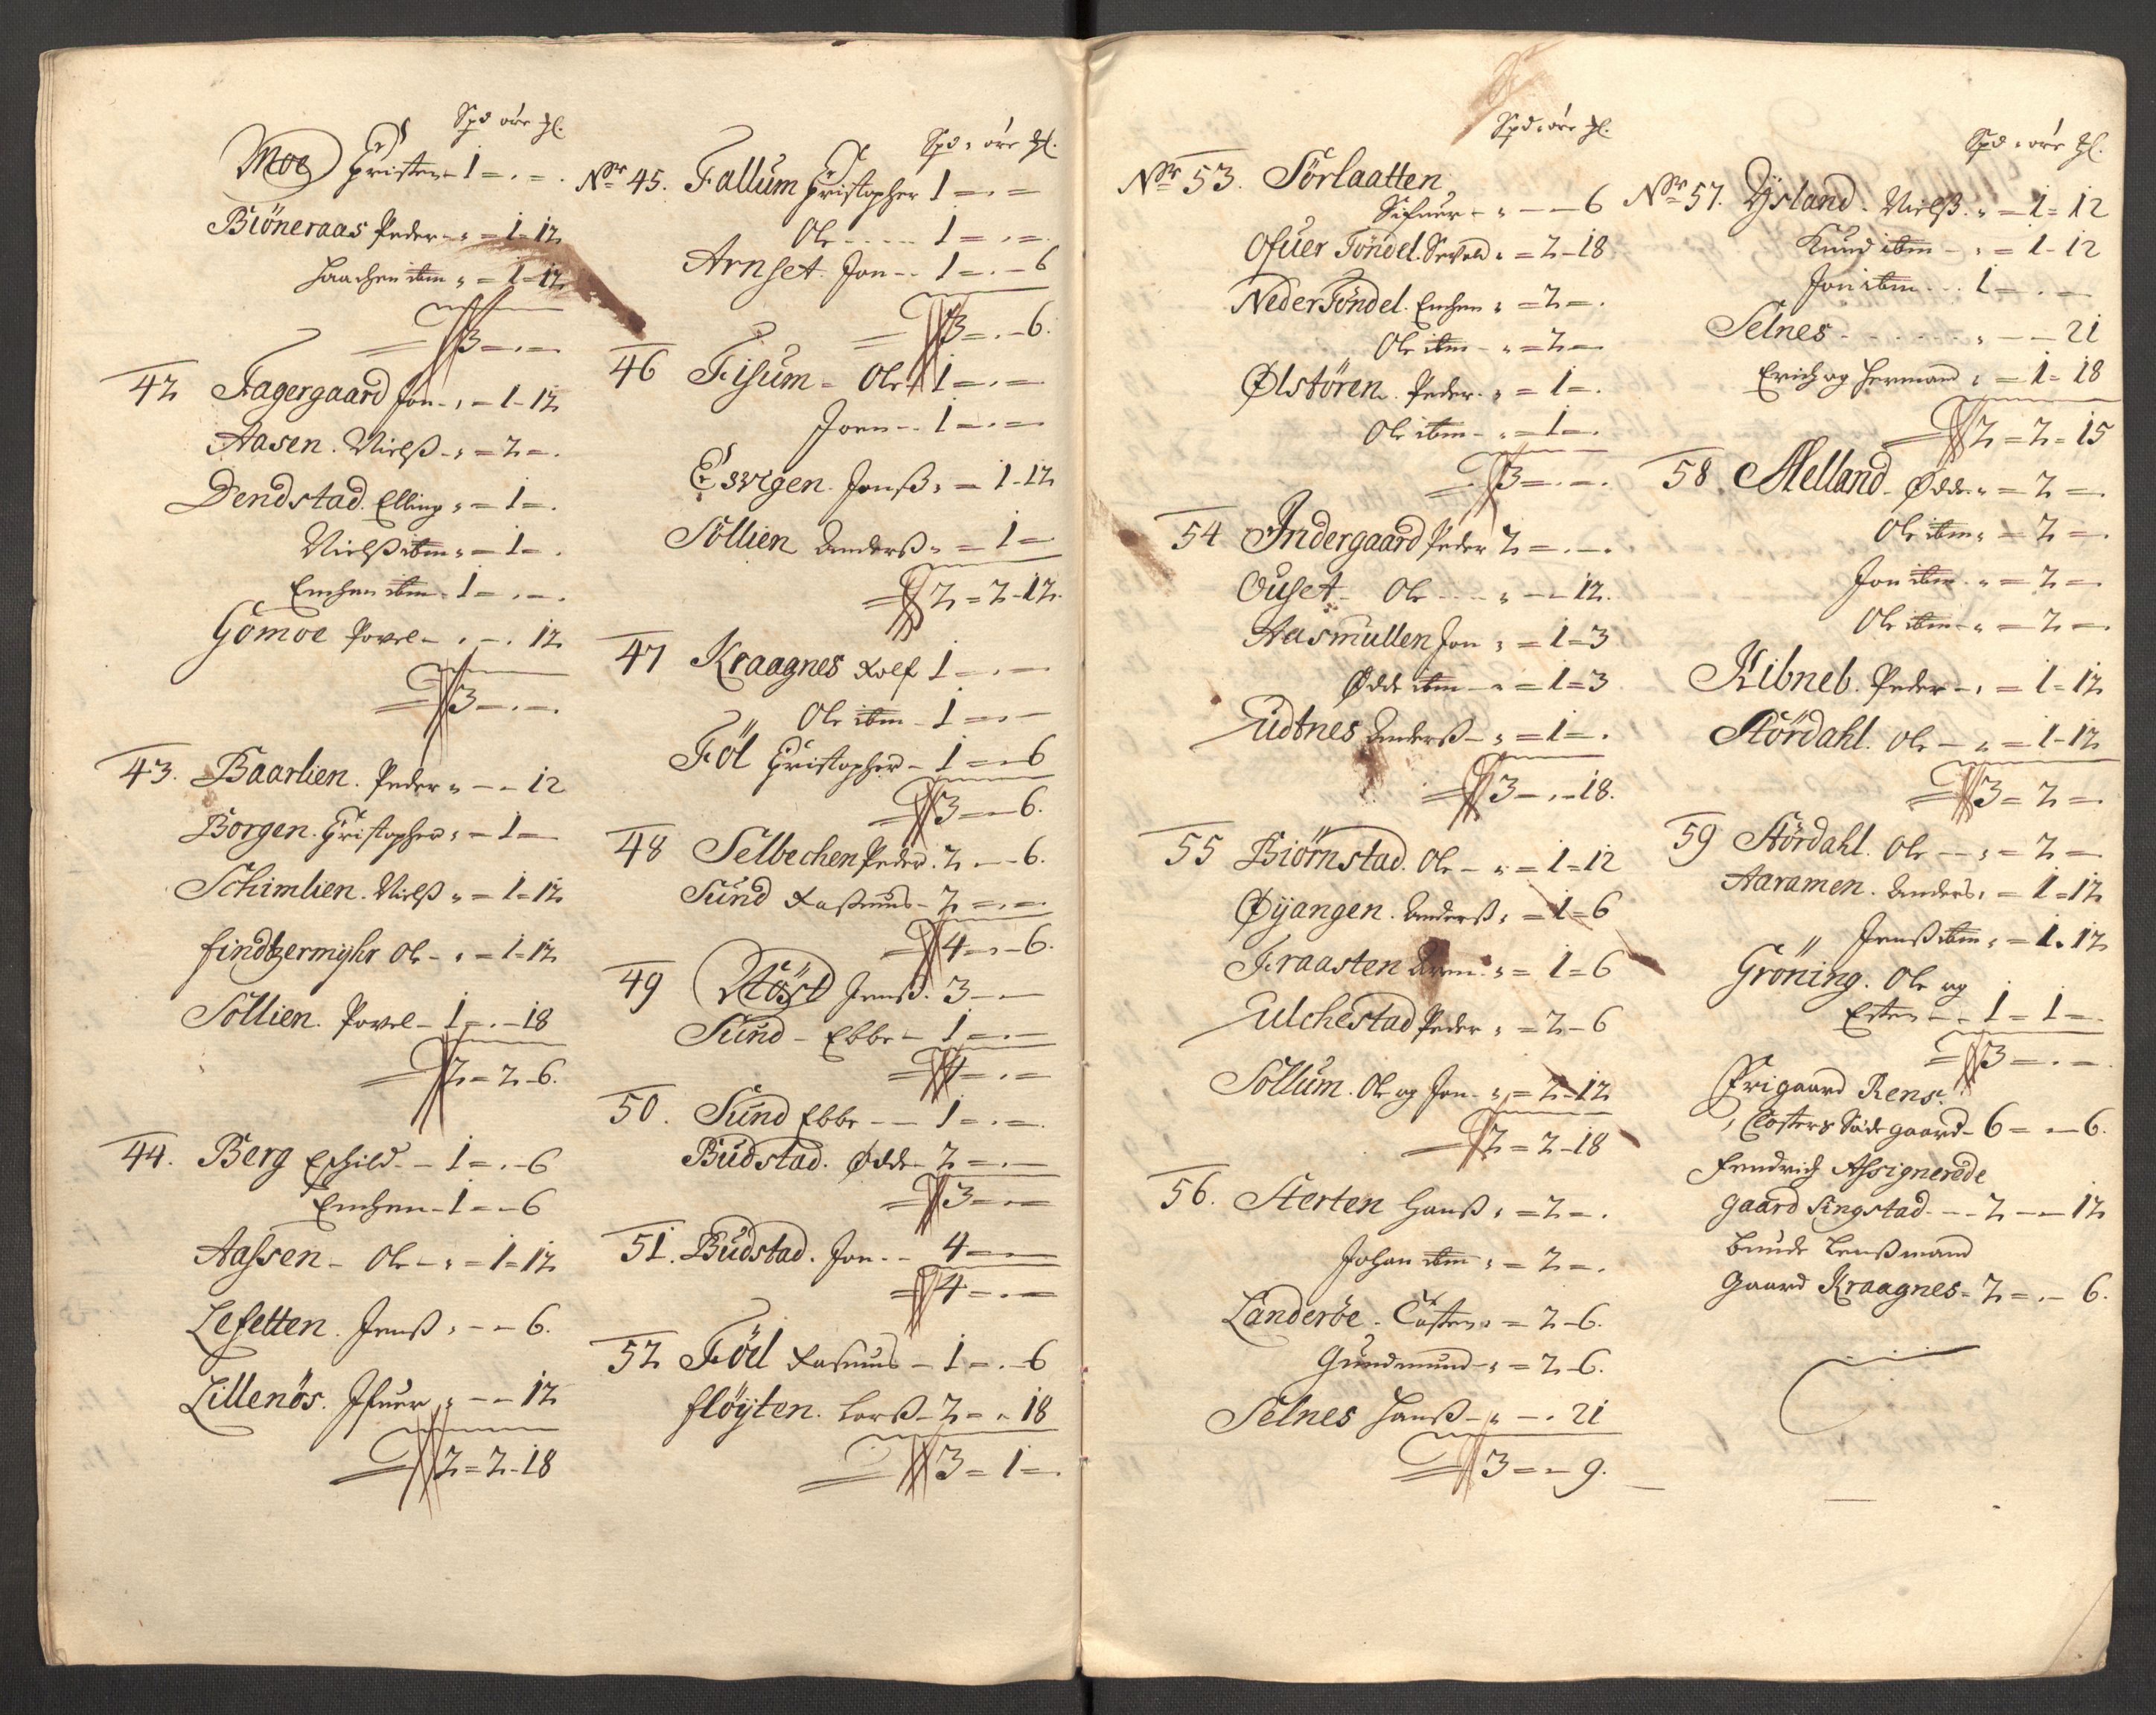 Spd öre ₰l.
Moe Christen - 1 = . = .
Biöneraas Peder - „ = 1 = 12
Haachen ibm „ = 1 = 12
3 = . =
42 Fagergaard Jon - „ = 1 - 12
Aasen. Nielß - „ = 2 = .
Dendstad. Elling „ = 1 = .
Nielß ibm „ = 1 = .
Emhen ibm - 1 = . = .
Gömoe Povel - . - . 12
3 = . = .
43. Baarlien. Peder „ - - 12
Borgen. Christopher „ = 1 =
Schimlien. Nielß „ = 1 = 12
findtzermyhr Ole - „ = 1 = 12
Söllien. Povel - 1 = . - 18
2 = 2 - 6.
44. Berg Eschild - - 1 = . - 6
Emhen - 1 = - 6
Aassen - Ole - „ = 1 = 12
Lefetten. Jenß „ - - 6.
Lillenös. Ifuer „ - - 12
2 = 2 - 18
Spd „ öre ₰l.
Nr 45. Fallum Christopher 1 = . =
Ole - - - - - 1 = . = .
Arnset. Jon - - 1 = . - 6
3 = . - 6.
46 Fisum - Ole - 1 = . =
Joen - - 1 = . =
Esvrgen. Jenß „ = 1 - 12
Söllien Anderß „ = 1 =
2 = 2 - 12.
47 Kraagnes Rolf 1 = . =
Ole ibm - 1 = . =
Föl Christopher - 1 = - 6
3 = - 6.
48 Selbechen Peder. 2 . - - 6.
Sund Rasmus - 2 = . =
4 = . - 6.
49 Röst Jenß. 3 - . -
Sund - Ebbe - 1 = . =
4 = . =
50. Sund Ebbe - - 1 = . =
Budstad. Odde - 2 = . =
3 = . =
51. Budstad. Jon. - - 4 = . =
4 = . =
52 Föll Rasmus - 1 = . - 6
flöyten. Larß - 2 = „ 18
3 = 1 = .
Spd „ öre ₰l.
Nr 53. Sörlaatten
Sifuer - „ - - 6
Ofuer Töndel. Sevald „ = 2 - 18
Neder Töndel. Emhen „ = 2 = .
Ole ibm - „ = 2 =
Ølstören. Peder. „ = 1 = .
Ole ibm - „ = 1 = .
3 = . = .
54 Indergaard Peder 2 = . = .
Ouset. Ole - - - „ - - 12.
Aasmullen Jon „ = 1 = 3
Odde ibm - „ = 1 = 3
Eudtnes Anderß - „ = 1 = .
3 = . = 18.
55 Biörnstad. Ole - „ = 1 = 12
Øyangen. Anderß „ = 1 = 6
Fraasten Arn „ = 1 = 6
Eulchestad Peder „ = 2 - 6
Sollum. Ole og Jon. „ = 2 - 12
2 = 2 - 18
56. Sterten Hanß „ = 2 = .
Johan ibm „ = 2 = .
Länderöe. Costen „ = 2 - 6.
Gundmund - „ = 2 - 6.
Selnes Hanß - „ - . 21
3 = - 9.
Spd „ öre ₰l.
Nr 57. Ysland. Nielß. „ = 1 = 12
Knud ibm - „ = 1 - 12
Jon ibm - - 1 = . =
Selnes - - - - - - „ - - 21
Erich og Hermand „ = 1 = 18
2 = 2 = 15
58. Melland. Odde „ = 2 = .
Ole ibm „ = 2 = .
Jon ibm „ = 2 = .
Ole ibm - „ = 2 = .
Kibneb. Peder - „ = 1 = 12
Stördahl. Ole - „ = 1 - 12
3 = 2 = .
59 Stördahl. Ole - - „ = 2 =
Aaramen. Anders „ = 1 = 12
Jenß ibm „ = 1. 12
Gröning. Ole og
Esten - - 1 = 1 = .
3 = . = .
Frigaard Rens.
Closters Sädegaard - 6 = . - 6.
Fendrich Assignerede
gaard Singstad - - - 2 - - 12
bunde Lenßmand
Gaard Kraagnes - 2 = . - 6.